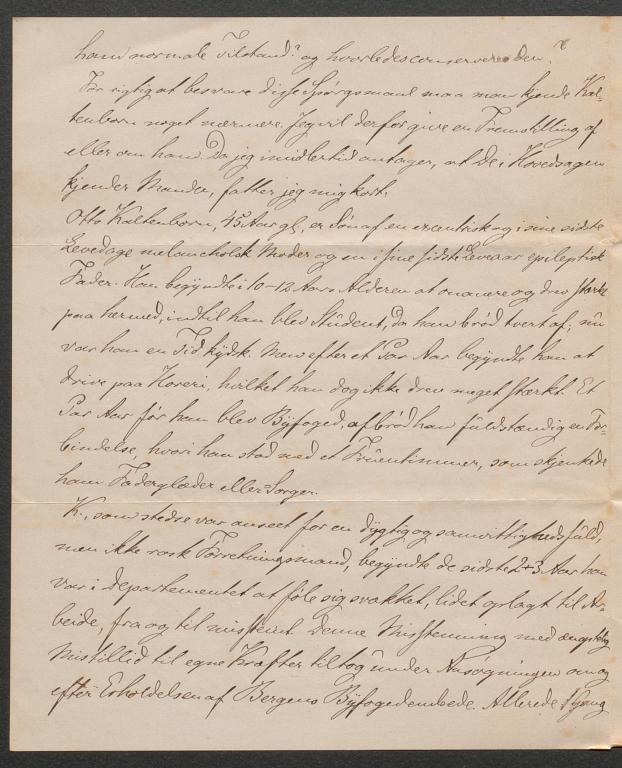 hans normale Tilstand? og hvorledes conserveres den?
For rigtig at besvare disse Spørgsmaal maa man kjende Kal-
tenborn noget nærmere. Jeg vil derfor give en Fremstilling af
eller om ham. Da jeg imidlertid antager, at De i Hovedsagen
kjender Manden, fatter jeg mig kort.
Otto Kaltenborn, 45 Aar gl, er Søn af en excentrisk og i sine sidste
Levedage melancholsk Moder og en i sine sidste Leveaar epileptisk
Fader. Han begyndte i 10-12 Aars Alderen at onanere og drev stærkt
paa hermed, indtil han blev Student, da han brød tvert af; nu
var han en Tid kydsk. Men efter et Par Aar begyndte han at
drive paa Horeri, hvilket han dog ikke drev meget stærkt. Et
Par Aar før han blev Byfoged, afbrød han fuldstændig en For-
bindelse, hvori han stod med et Fruentimmer, som skjenkede
ham Faderglæder eller Sorger.
K., som stedse var anseet for en dygtig og samvittighedsfuld,
men ikke rask Forretningsmand, begyndte de sidste 2-3 Aar han
var i Departementet at føle sig svækket, lidet oplagt til Ar-
beide, fra og til mistrøstig. Denne Misstemning med ængstelig
Mistillid til egne Kræfter tiltog under Ansøgningen om og
efter Erholdelsen af Bergens Byfogedembede. Allerede Gang